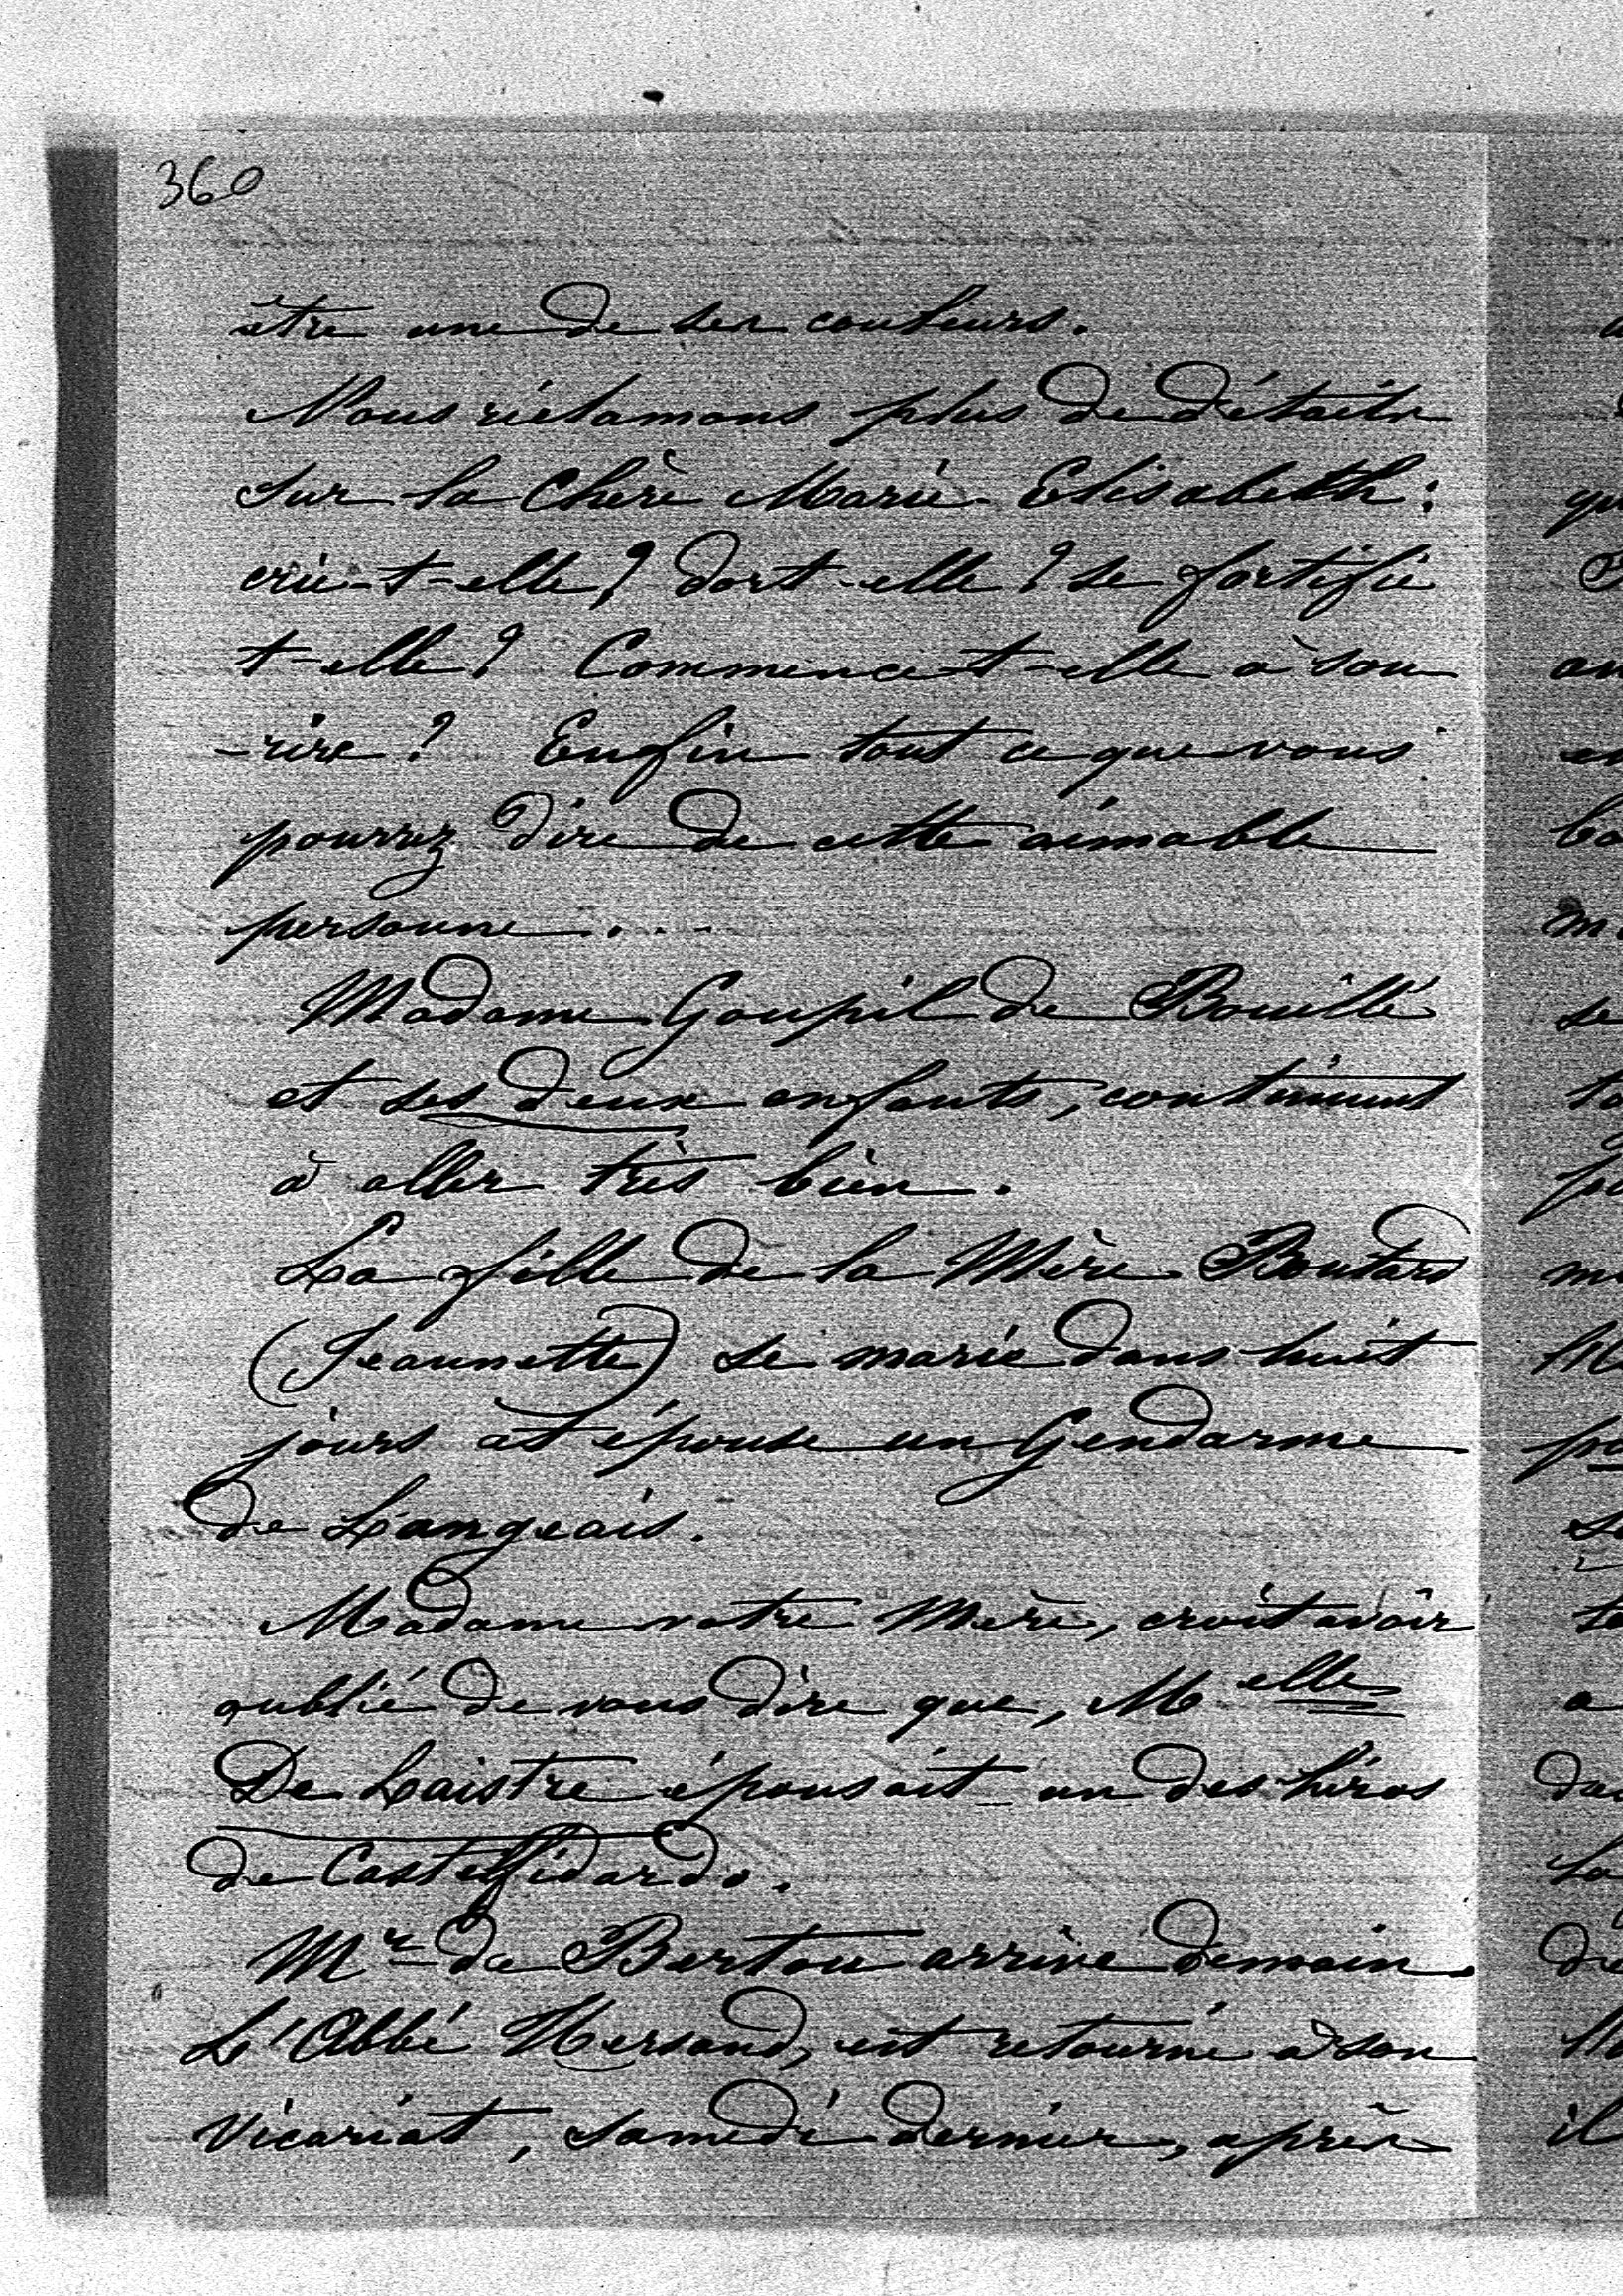 360
être une de ses couleurs.
Nous réclamons plus de détails
sur la Chère Marie-Elisabeth :
crie-t-elle ? dort-elle ? se fortifie
t-elle ? Commence-t-elle à sou
-rire ? Enfin tout ce que vous
pourrez dire de cette aimable
personne ...
Madame Goupil de Bouillé
et ses deux enfants, continuent
à aller très bien.
La fille de la Mère Boutard
(Jeannette) se marie dans huit
jours et épouse un Gendarme
de Langeais.
Madame votre Mère, croit avoir
oublié de vous dire que, Melle
De Laistre épousait un des héros
de Castelfidardo.
Mr de Bertou arrive demain.
L'Abbé Hersand, est retourné à son
Vicariat, samedi dernier, après